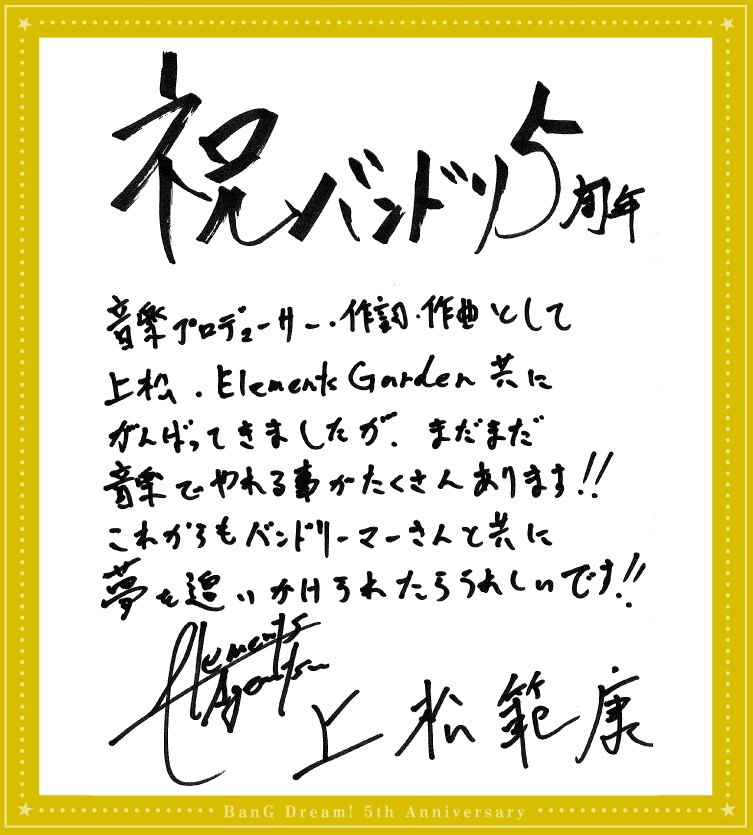 祝バンドリ5周年
音楽プロデューサー・作詞・作曲として
上松・Elements Garden 共に
がんばってきましたが、まだまだ
音楽でやれる事がたくさんあります!!
これからもバンドリーマーさんと共に
夢を追いかけられたらうれしいです!!
Elements
上松範康
BanG Dream! 5th Anniversary